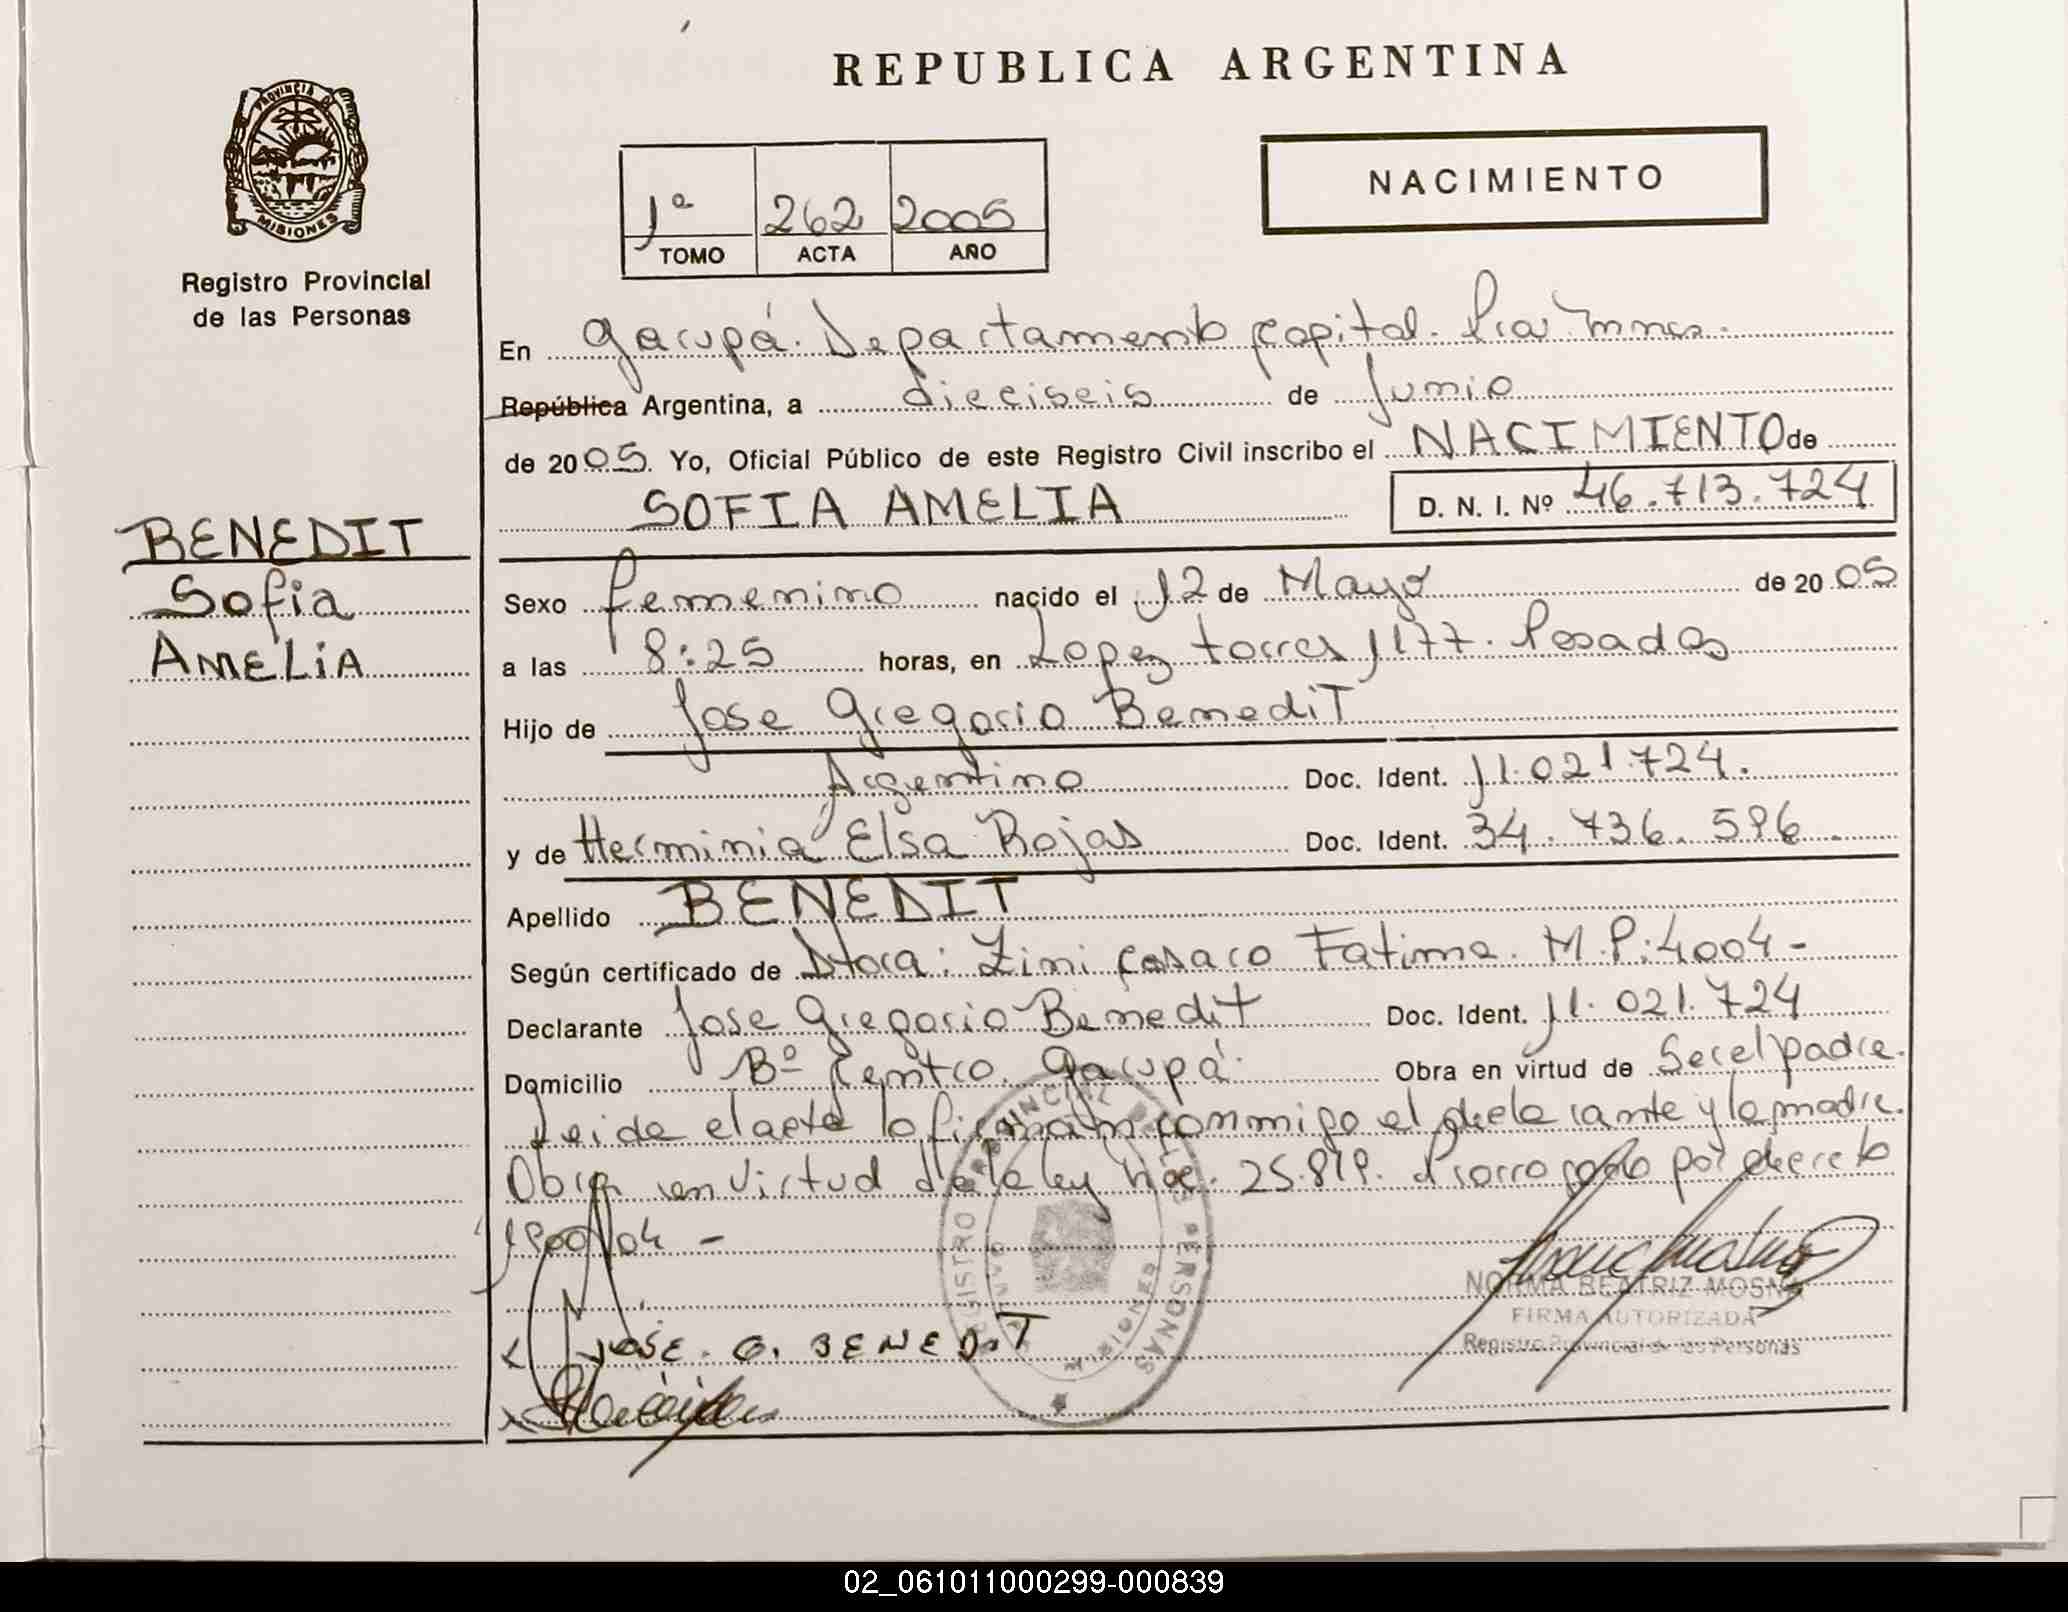 REPUBLICA ARGENTINA
PROVINCIA DE
MISIONES
Registro Provincial
de las Personas
1ª 262 2005
TOMO ACTA AÑO
NACIMIENTO
En Garupá. Departamento Capital. Pcia Mnes.
República Argentina, a dieciseis de Junio
de 2005. Yo, Oficial Público de este Registro Civil inscribo el NACIMIENTO de
SOFIA AMELIA D. N. I. Nº 46.713.724
BENEDIT
Sofia
AMELiA
Sexo femenino nacido el 12 de Mayo de 2005
a las 8:25 horas, en Lopez torres 1177. Posadas
Hijo de Jose Gregorio BenediT
Argentino Doc. Ident. 11.021.724.
y de Herminia Elsa Rojas Doc. Ident. 34.736.596.
Apellido BENEDIT
Según certificado de Dtora: Zini Fatima. M.P:4004-
Declarante Jose Gregorio Benedit Doc. Ident. 11.021.724
Domicilio Bº Centro. Garupá. Obra en virtud de Ser el padre.
Leida el acta la firman conmigo el declarante y la madre.
Obra en virtud de la ley 25.819. Prorrogado por decreto
1900/04 -
JOSE. G. BENEDiT
NORMA BEATRIZ MOSNA
FIRMA AUTORIZADA
Registro Provincial de las Personas
REGISTRO PROVINCIAL DE LAS PERSONAS
MISIONES
02_061011000299-000839